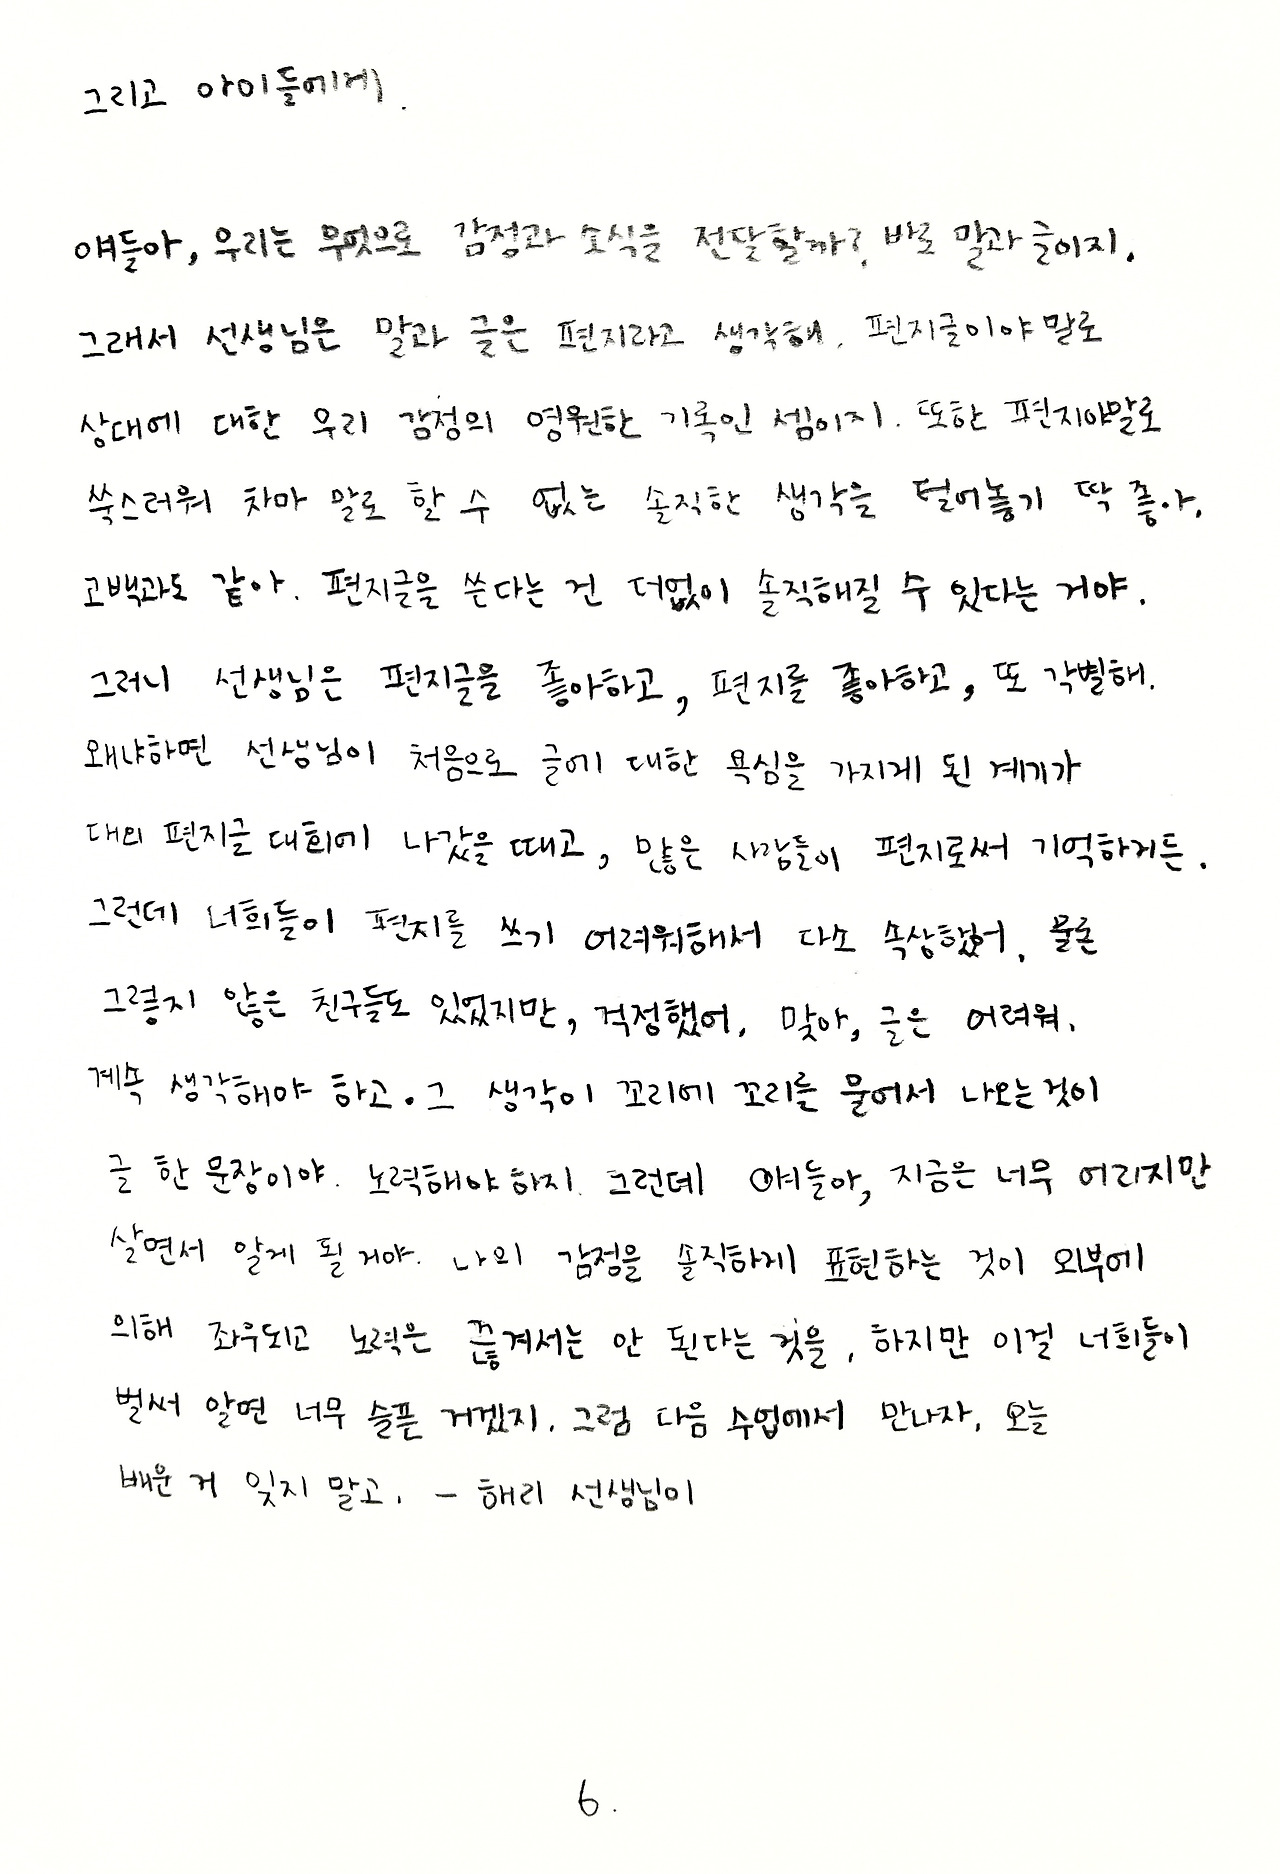 그리고 아이들에게.
얘들아, 우리는 무엇으로 감정과 소식을 전달할까? 바로 말과 글이지.
그래서 선생님은 말과 글은 편지라고 생각해. 편지글이야말로
상대에 대한 우리 감정의 영원한 기록인 셈이지. 또한 편지야말로
쑥스러워 차마 말로 할 수 없는 솔직한 생각을 털어놓기 딱 좋아.
고백과도 같아. 편지글을 쓴다는 건 더없이 솔직해질 수 있다는 거야.
그러니 선생님은 편지글을 좋아하고, 편지를 좋아하고, 또 각별해.
왜냐하면 선생님이 처음으로 글에 대한 욕심을 가지게 된 계기가
대외 편지글 대회에 나갔을 때고, 많은 사람들이 편지로써 기억하거든.
그런데 너희들이 편지를 쓰기 어려워해서 다소 속상했어. 물론
그렇지 않은 친구들도 있었지만, 걱정했어. 맞아, 글은 어려워.
계속 생각해야 하고. 그 생각이 꼬리에 꼬리를 물어서 나오는 것이
글 한 문장이야. 노력해야 하지. 그런데 얘들아, 지금은 너무 어리지만
살면서 알게 될 거야. 나의 감정을 솔직하게 표현하는 것이 외부에
의해 좌우되고 노력은 끊겨서는 안 된다는 것을, 하지만 이걸 너희들이
벌써 알면 너무 슬픈 거겠지. 그럼 다음 수업에서 만나자. 오늘
배운 거 잊지 말고. - 해리 선생님이
6.